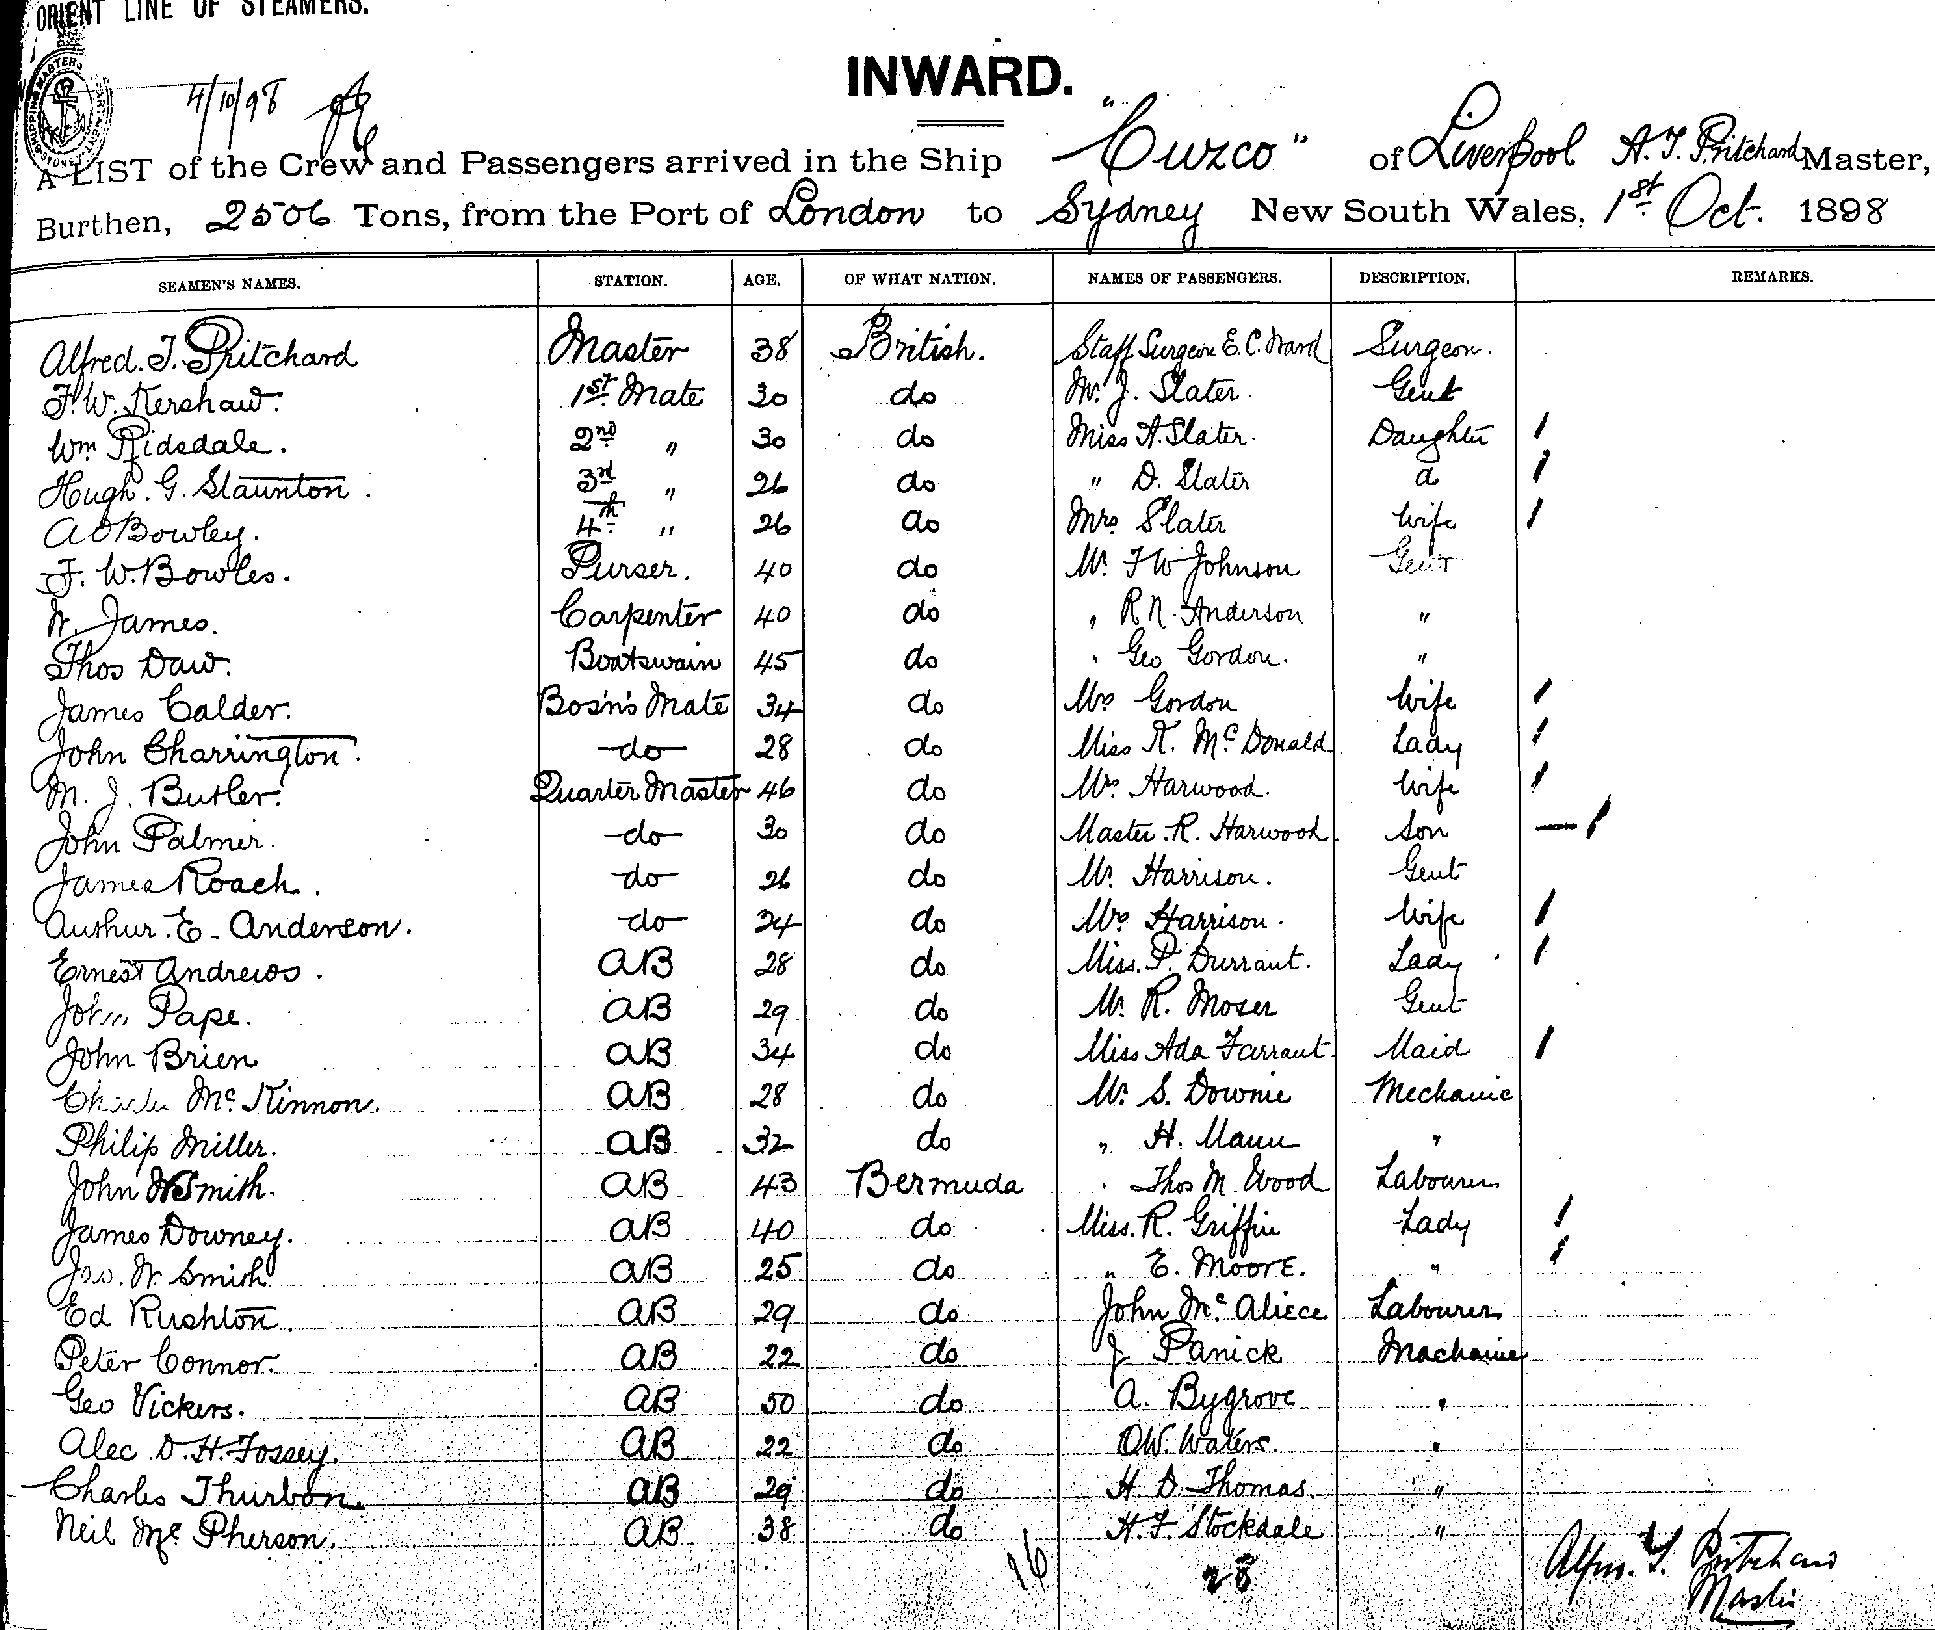 ORIENT LINE OF STEAMERS.
4/10/98
INWARD.
A LIST of the Crew and Passengers arrived in the Ship "Cuzco" of Liverpool A. T. Pritchard Master,
Burthen, 2506 Tons, from the Port of London to Sydney New South Wales, 1st Oct. 1898
SEAMEN'S NAMES. STATION. AGE. OF WHAT NATION. NAMES OF PASSENGERS. DESCRIPTION. REMARKS.
Alfred. T. Pritchard Master 38 British. Staff Surgeon E. C. Ward Surgeon.
F. W. Kershaw. 1st Mate 30 do Mr. J. Slater. Gent
Wm Ridsdale. 2nd " 30 do Miss A. Slater. Daughter
Hugh. G. Staunton. 3rd " 26 do " D. Slater do
A O Bowley. 4th " 26 do Mrs Slater Wife
F. W. Bowles. Purser. 40 do Mr. F W Johnson Gent
W. James. Carpenter 40 do " R N. Anderson "
Thos Daw. Boatswain 45 do " Geo Gordon. "
James Calder. Bosn's Mate 34 do Mrs Gordon Wife
John Charrington. do 28 do Miss K. McDonald Lady
M. J. Butler. Quarter Master 46 do Mrs. Harwood. Wife
John Palmer. do 30 do Master. R. Harwood. Son
James Roach. do 26 do Mr. Harrison. Gent
Authur. E. Anderson. do 24 do Mrs Harrison. Wife
Ernest Andrews. AB 28 do Miss. P. Durrant. Lady
John Pape. AB 29 do Mr. R. Moser Gent
John Brien AB 34 do Miss Ada Farrant. Maid
Charles McKinnon. AB 28 do Mr. S. Downie Mechanic
Philip Miller. AB 32 do " H. Mann "
John W Smith. AB 43 Bermuda " Thos M Wood Labourer
James Downey. AB 40 do Miss. R. Griffin Lady
Jno. W. Smith AB 25 do " E. Moore. "
Ed Rushton. AB 29 do John McAliece Labourer
Peter Connor. AB 22 do J Panick Machanic
Geo Vickers. AB 50 do A. Bygrove "
Alec D. H. Fossey. AB 22 do O W. Waters. "
Charles Thurbon. AB 29 do H. D. Thomas. "
Neil McPherson. AB 38 do H. F. Stockdale "
16 28 Alfred. T. Pritchard
Master